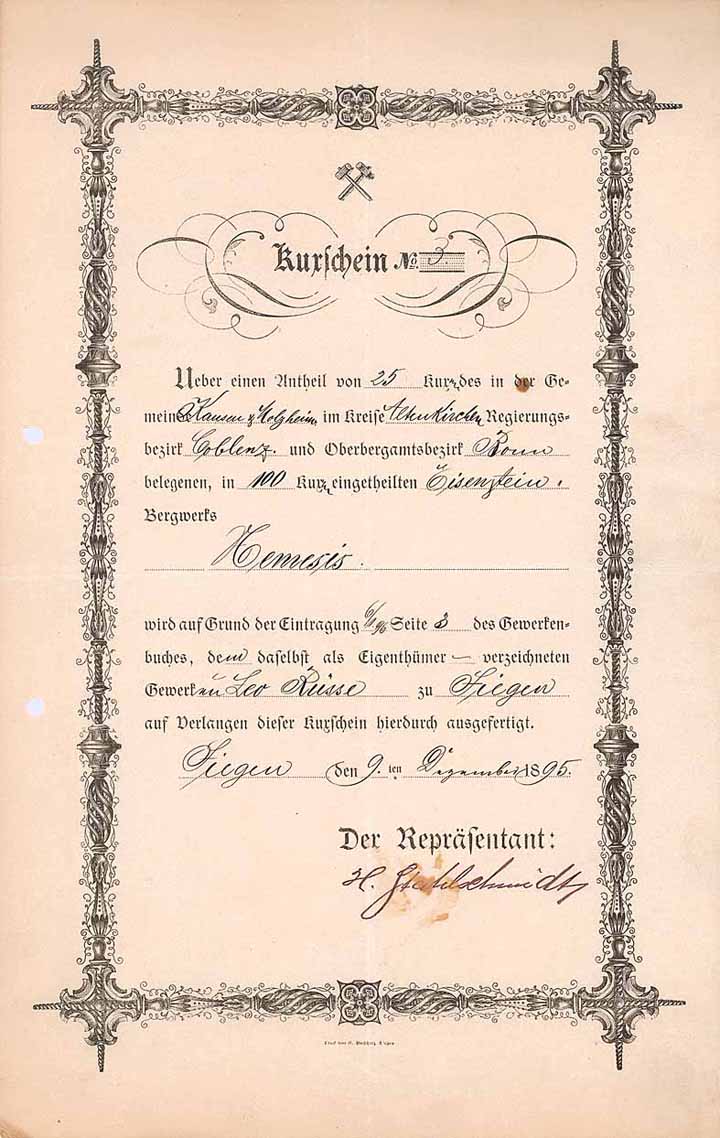 Kuxschein No. 3.
Ueber einen Antheil von 25 Kuxen des in der Ge-
meinde Kausen & Molzhain im Kreise Altenkirchen Regierungs-
bezirk Coblenz. und Oberbergamtsbezirk Bonn
belegenen, in 100 Kuxen eingetheilten Eisenstein,
Bergwerks
Nemesis.
wird auf Grund der Eintragung Seite 3 des Gewerken-
buches, dem daselbst als Eigenthümer — verzeichneten
Gewerken Leo Rüsse zu Siegen
auf Verlangen dieser Kuxschein hierdurch ausgefertigt.
Siegen den 9.ten Dezember 1895.
Der Repräsentant:
H. Stahlschmidt